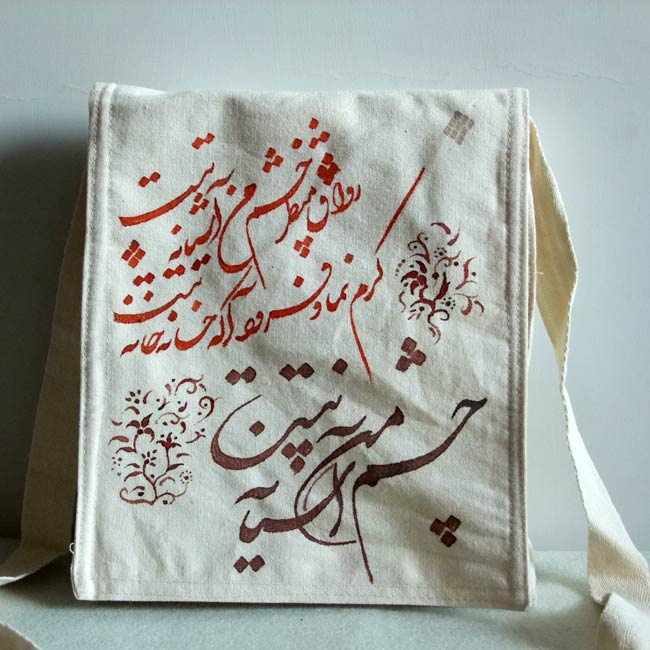 رواق منظر چشم من آشیانه تست
کرم نما و فرود آ که خانه خانه تست
چشم من آشیانه تست